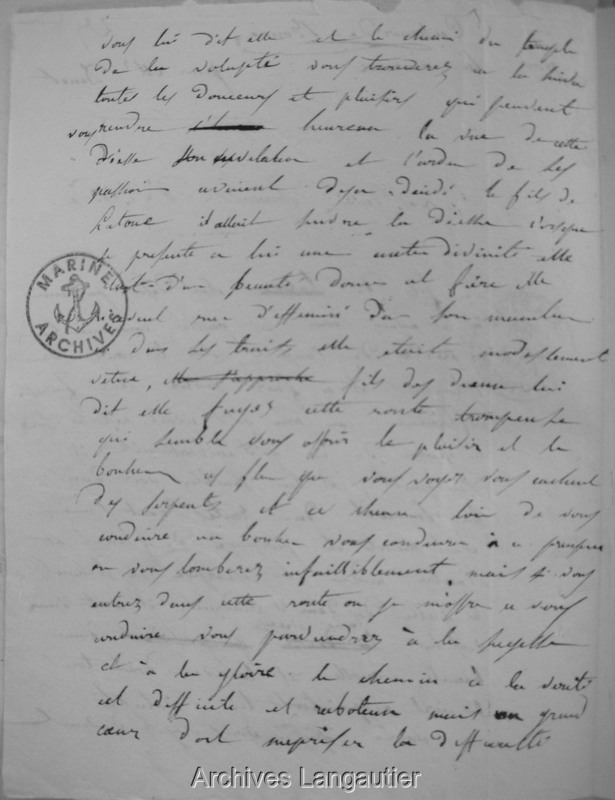 vous lui dit elle est le chemin du temple
De la volupté vous trouverez a la
toutes les Douceurs et plaisirs qui peuvent
vous rendre heureux la vue de cette
Diesse Son et l'ardeur de Ses
passion avoient deja decidé le fils de
Latone il alloit suivre la Diesse lorsque
se presente a lui une autre divinité elle
etoit D'une beauté douce et fière elle
n'avoit rien d'efféminé Dans Son
et dans Ses traits elle etoit modestement
vetue, elle s'approche fils des dieux lui
dit elle fuyez cette route trompeuse
qui semble vous offrir le plaisir et le
bonheur ces fleurs que vous voyez vous cachent
Des serpents et ce chemin loin de vous
conduire au bonheur vous conduira a un precipice
ou vous tomberez infailliblement, mais si vous
entrez dans cette route ou je m'offre a vous
conduire vous parviendrez à la sagesse
et à la gloire le chemin à la verité
est difficile et raboteux mais un grand
cœur doit mepriser la difficulté
MARINE
ARCHIVES
Archives Langautier